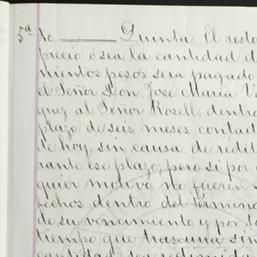 5ª to. ——— Quinta. El resto
precio ó sea la cantidad d
mientos pesos será pagado
el Señor Don José María Va
quez al Señor Rosell, dentro
plazo de seis meses contad
de hoy, sin causa de rédit
rante ese plazo, pero si por c
quier motivo no fueren s
fechos dentro del término
de su vencimiento y por to
tiempo que trascurra sin
cantidad sea redimida